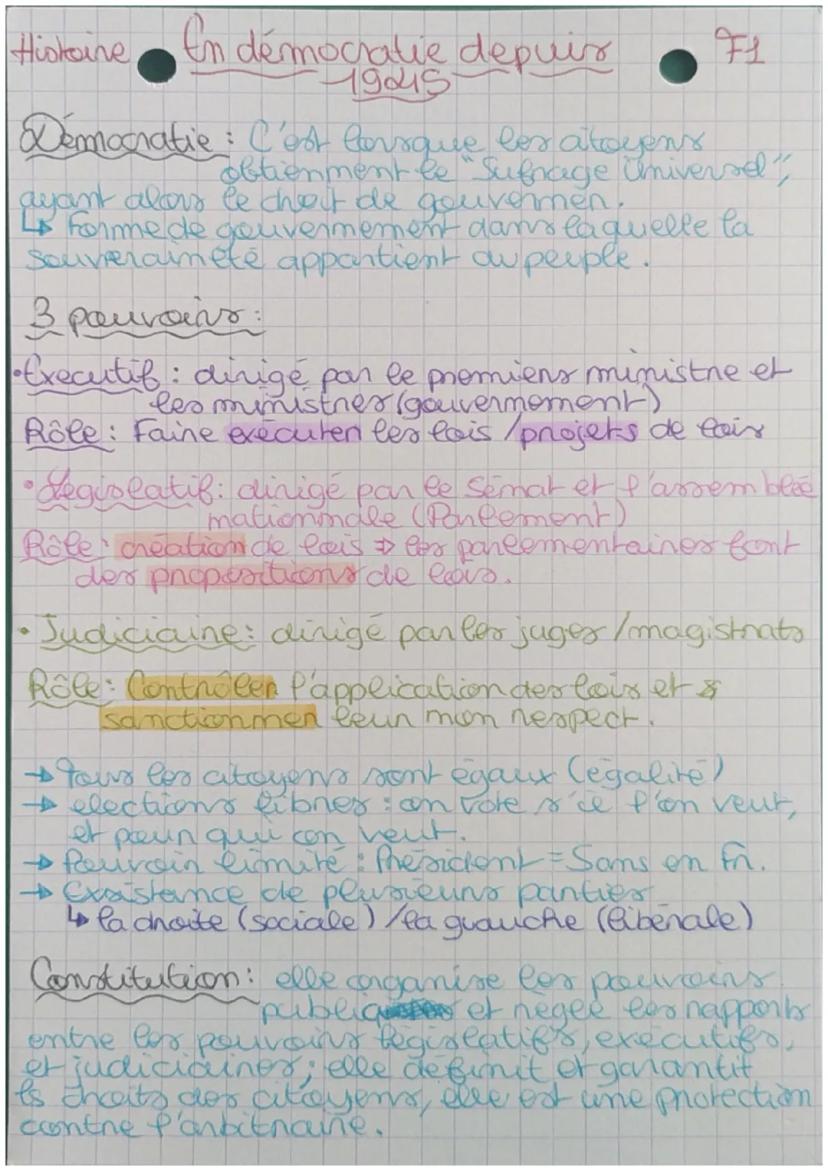 Histoire En démocratie depuis F1
1945
Démocratie : C'est lorsque les citoyens
obtiennent le "Sufrage Universel",
ayant alors le choix de gouverner.
↳ Forme de gouvernement dans laquelle la
souveraineté appartient au peuple.
3 pouvoirs :
•Executif : dirigé par le premiers ministre et
les ministres (gouvernement)
Rôle : Faire exécuter les lois / projets de lois
•Législatif : dirigé par le Sénat et l'assemblée
nationnale (Parlement)
Rôle : création de lois ⇒ les parlementaires font
des propositions de lois.
• Judiciaire : dirigé par les juges / magistrats
Rôle : Contrôler l'application des lois et
sanctionner leur non respect.
→ Tous les citoyens sont égaux (égalité)
→ elections libres : on vote s'ie l'on veut,
et pour qui on veut.
→ Pouvoir limité : Président = 5ans en Fr.
→ Existance de plusieurs parties
↳ la droite (sociale) / la guauche (libérale)
Constitution : elle organise les pouvoirs
publics et règle les rapports
entre les pouvoirs législatifs, exécutifs,
et judiciaires ; elle définit et garantit
ls droits des citoyens, elle est une protection
contre l'arbitraire.